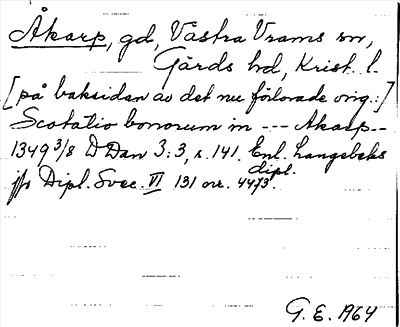 Åkarp, gd, Västra Vrams sn,
Gärds hd, Krist. l.
[på baksidan av det nu förlorade orig.:]
Scotatio bonorum in --- Akarp --
1349 3/8 DDan 3:3, s. 141. Enl. Langebeks
dipl.
jfr Dipl. Svec. VI 131 nr. 4473.
G. E. 1964